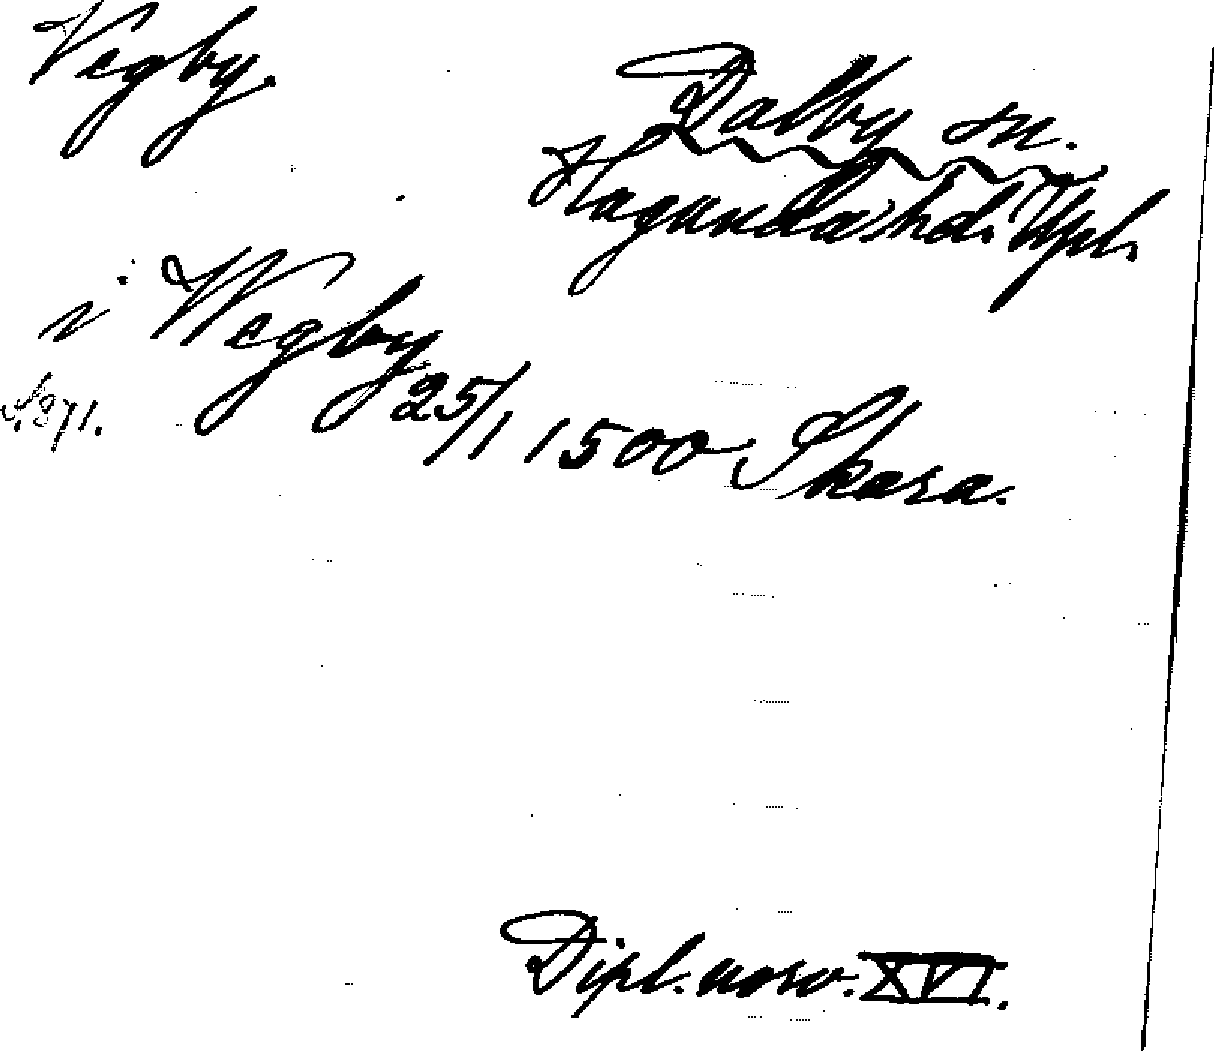 Vegby.
Dalby sn.
Hagunda hd. Upl.
i Wegby 25/1 1500 Skara.
S. 871.
Dipl. norv. XVI.